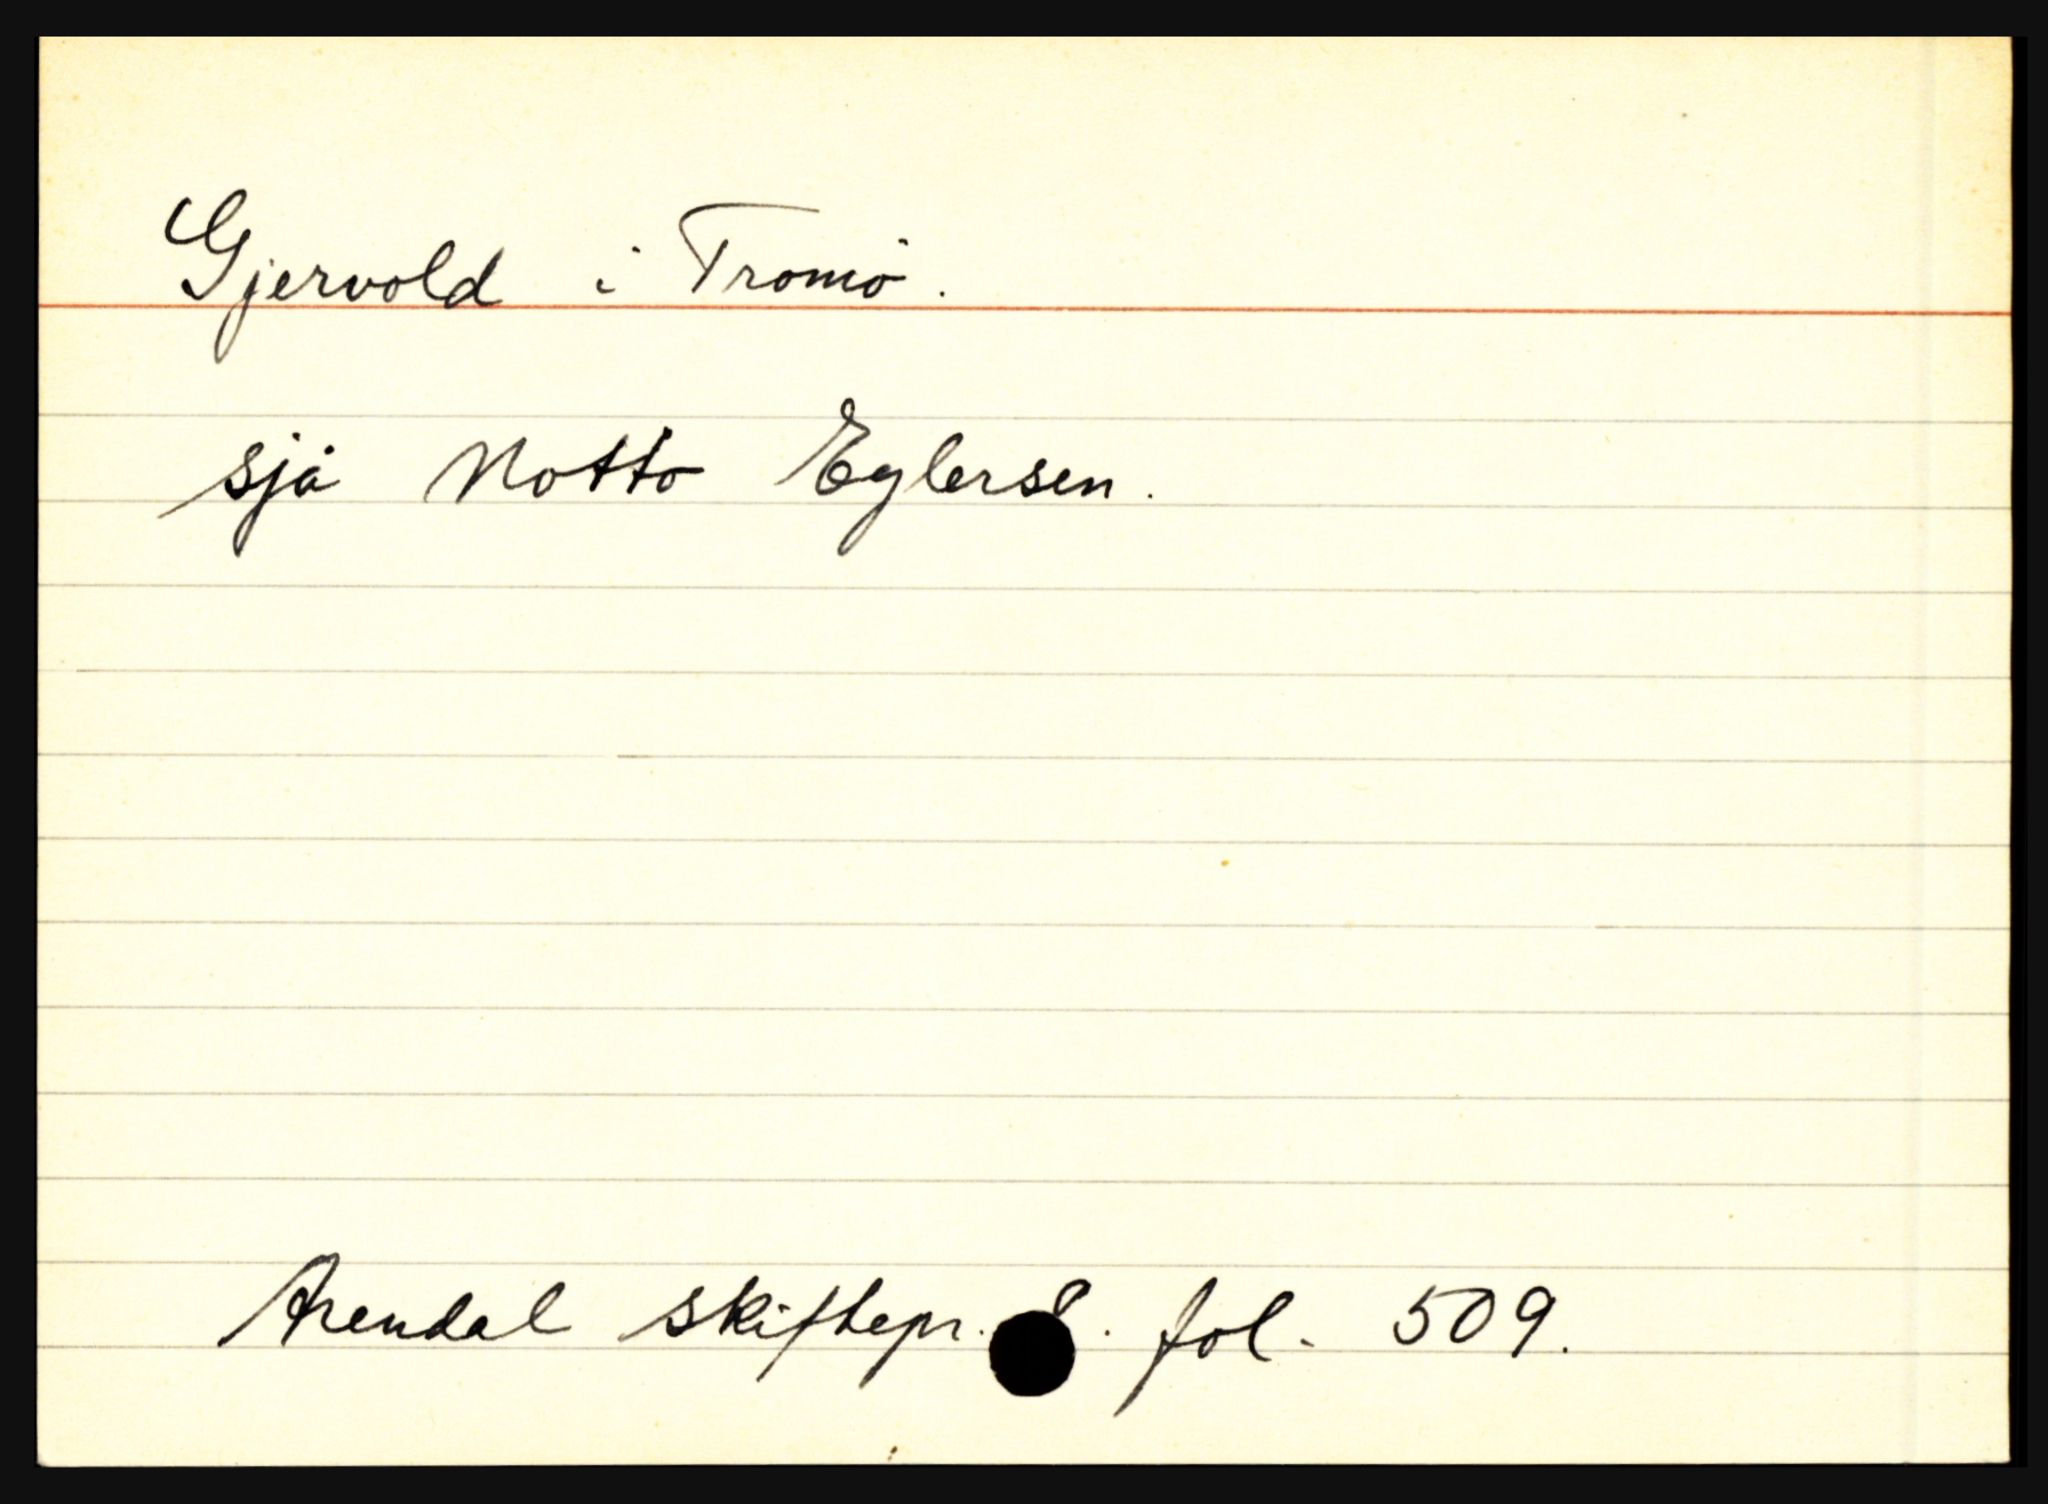 Gjervold i Tromö.
sjå Notto Eylersen.
Arendal skiftepr. 8. fol. 509.